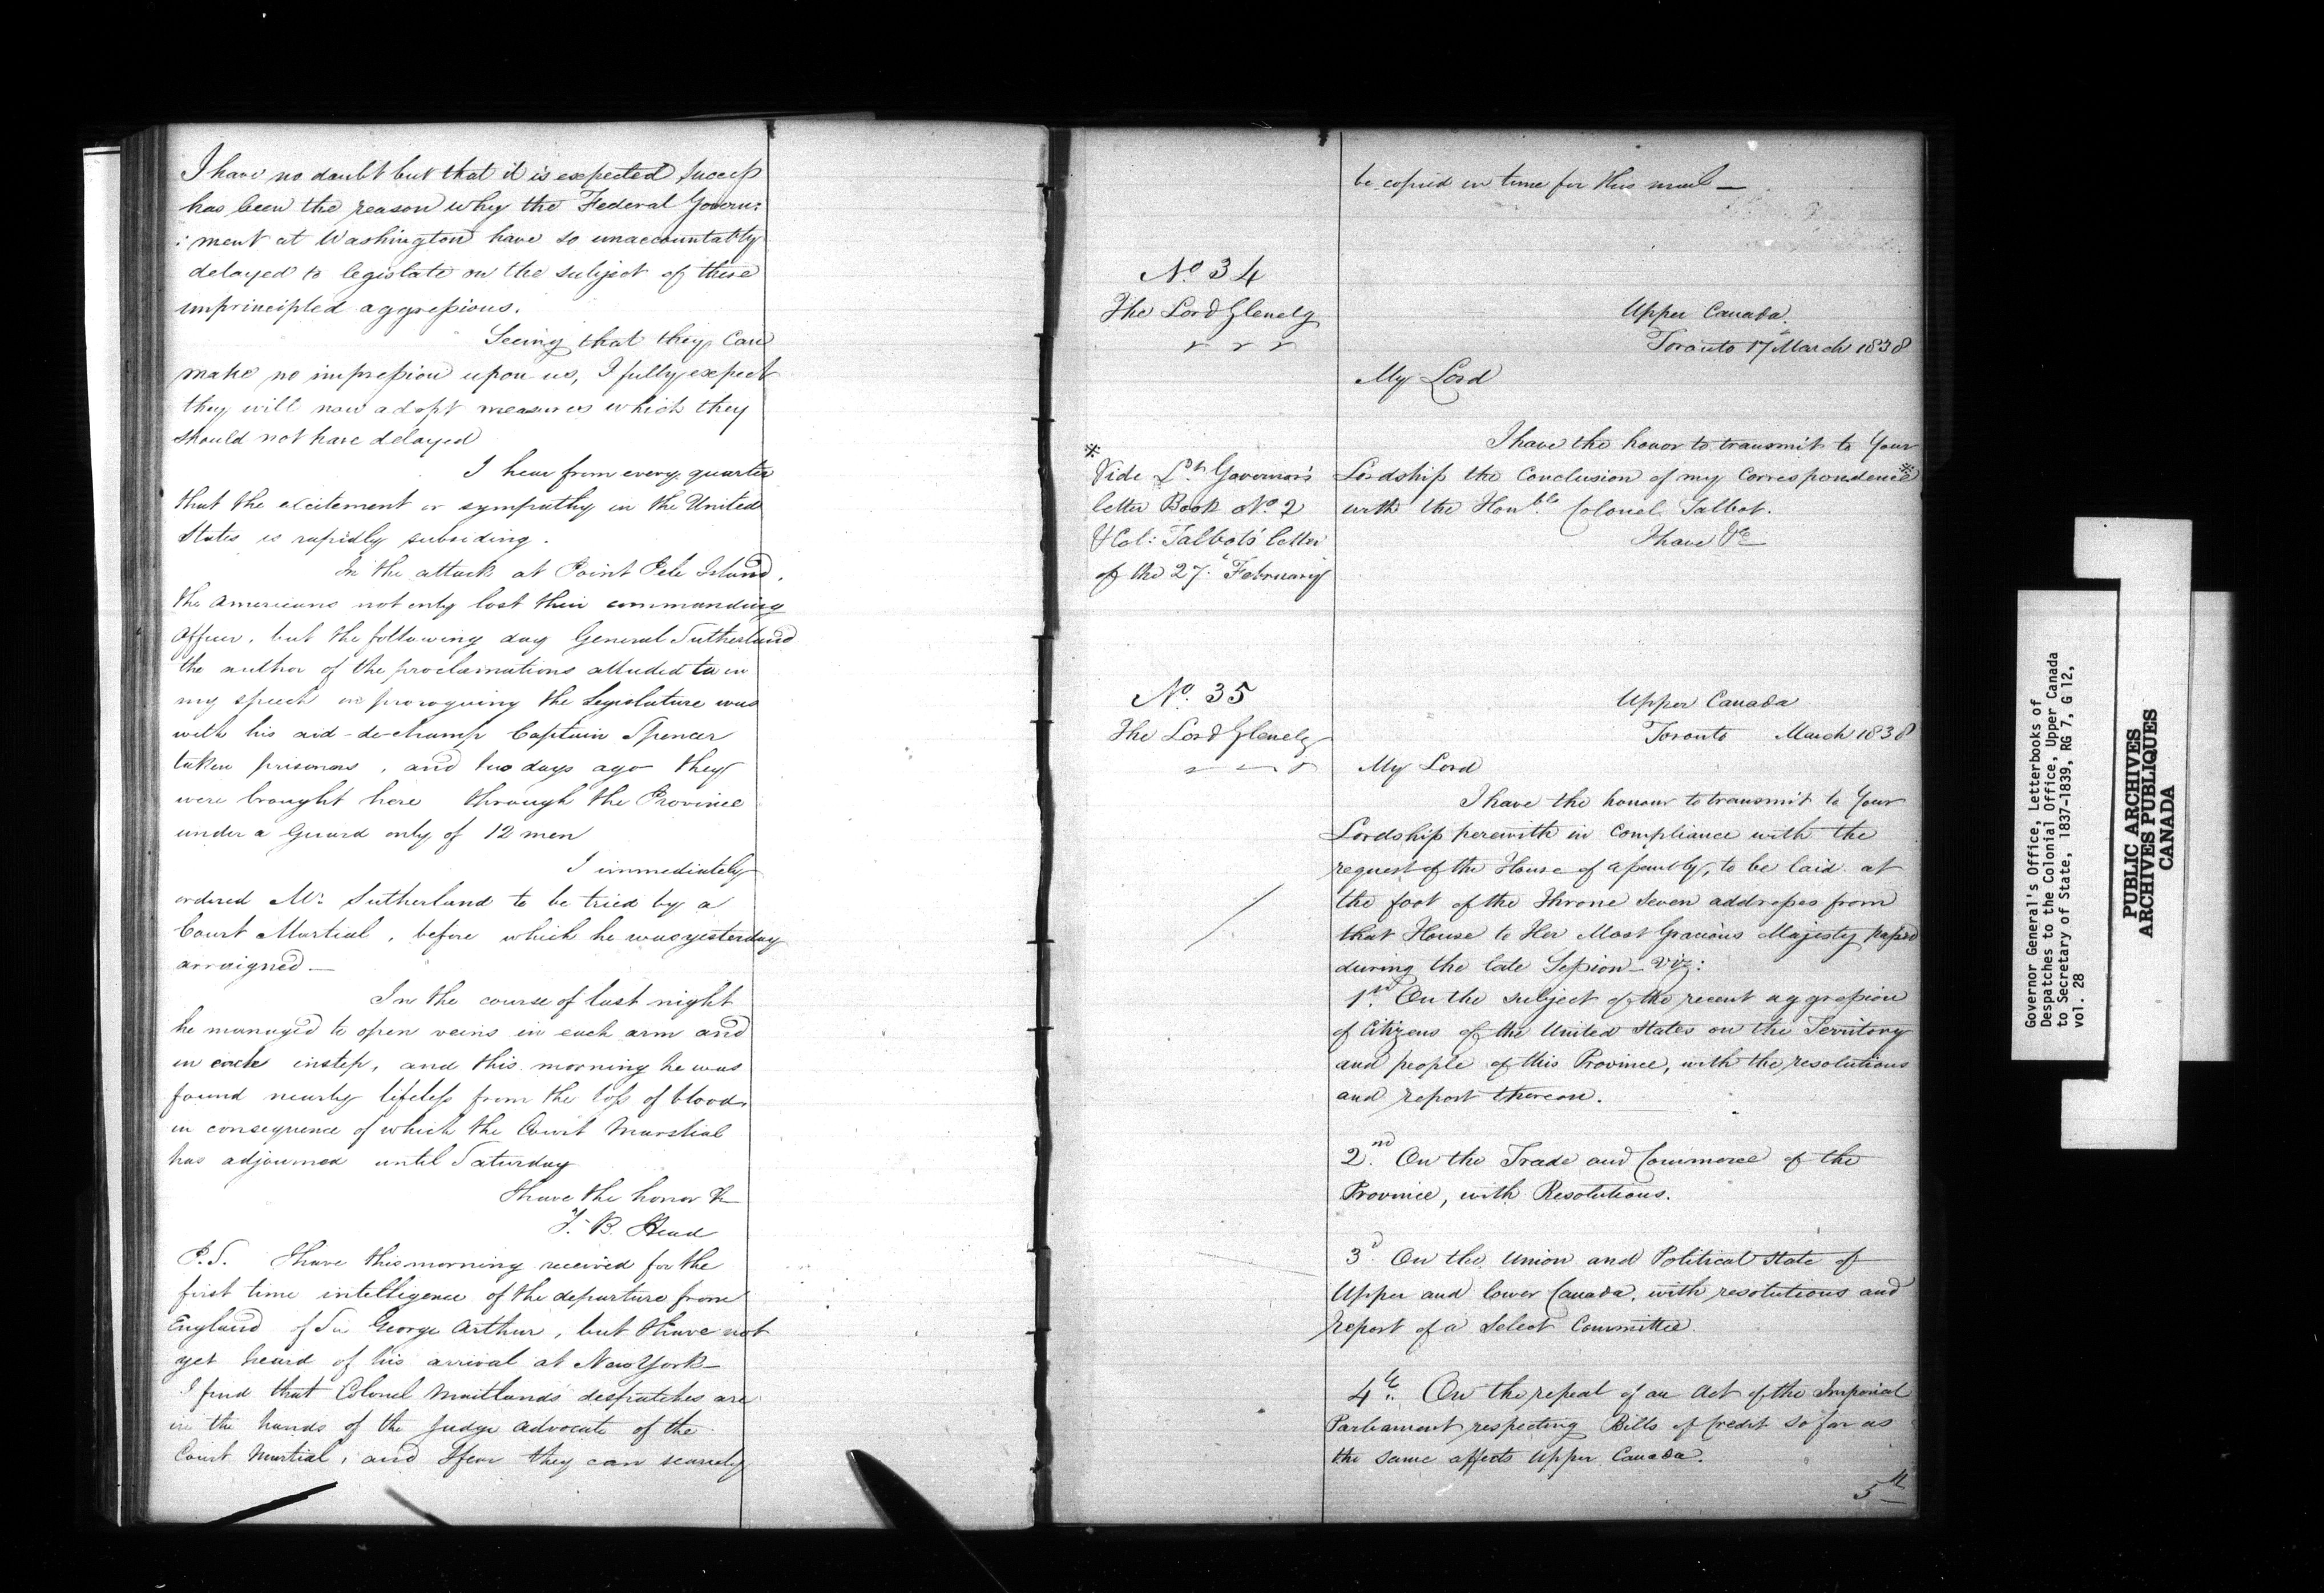 I have no doubt but that it is expected success
has been the reason why the Federal Govern:
:ment at Washington have so unaccountably
delayed to legislate on the subject of these
unprincipled aggressions.
Seeing that they can
make no impression upon us, I fully expect
they will now adopt measures which they
should not have delayed
I hear from every quarter
that the excitement or sympathy in the United
States is rapidly subsiding.
In the attack at Point Pele Island,
the Americans not only lost their commanding
Officer, but the following day General Sutherland
the author of the proclamations alluded to in
my speech on proroguing the Legislature was
with his aid-de-champ Captain Spencer
taken prisoners, and two days ago they
were brought here through the Province
under a Guard only of 12 men
I immediately
ordered Mr. Sutherland to be tried by a
Court Martial, before which he was yesterday
arraigned—
In the course of last night
he managed to open veins in each arm and
in each instep, and this morning he was
found nearly lifeless from the loss of blood,
in consequence of which the Court Marshial
has adjourned until Saturday
I have the honor &c
F. B. Head
P.S. I have this morning received for the
first time intelligence of the departure from
England of Sir George Arthur, but I have not
yet heard of his arrival at New York—
I find that Colonel Maitlands despatches are
in the hands of the Judge Advocate of the
Court Martial, and I fear they can scarcely
be copied in time for this mail—
No. 34
The Lord Glenelg
Upper Canada.
Toronto 17 March 1838
My Lord
I have the honor to transmit to Your
Lordship the Conclusion of my Correspondence*
with the Honble Colonel Talbot.
I have &c
*
Vide Lt. Governor's
letter Book No. 2
& Col: Talbot's letter
of the 27. February
No. 35
The Lord Glenelg
Upper Canada
Toronto March 1838
My Lord
I have the honour to transmit to Your
Lordship herewith in compliance with the
request of the House of Assembly, to be laid at
the foot of the Throne seven addresses from
that House to Her Most Gracious Majesty passed
during the late Session—viz:
1st. On the subject of the recent aggression
of Citizens of the United States on the Territory
and people of this Province, with the resolutions
and report thereon.
2nd. On the Trade and Commerce of the
Province, with Resolutions.
3d. On the Union and Political State of
Upper and lower Canada, with resolutions and
report of a Select Committee.
4th. On the repeal of an Act of the Imperial
Parliament respecting Bills of Credit so far as
the same affects Upper Canada.
5th
Governor General's Office, Letterbooks of
Despatches to the Colonial Office, Upper Canada
to Secretary of State, 1837-1839, RG 7, G 12,
vol. 28
PUBLIC ARCHIVES
ARCHIVES PUBLIQUES
CANADA